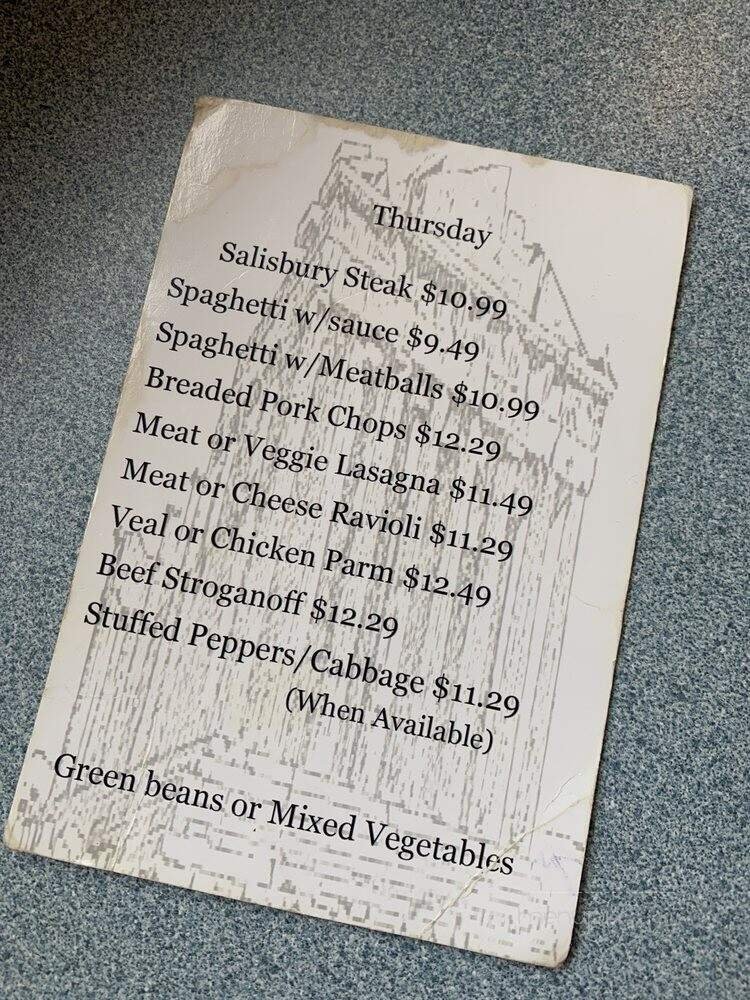 Thursday
Salisbury Steak $10.99
Spaghetti w/sauce $9.49
Spaghetti w/Meatballs $10.99
Breaded Pork Chops $12.29
Meat or Veggie Lasagna $11.49
Meat or Cheese Ravioli $11.29
Veal or Chicken Parm $12.49
Beef Stroganoff $12.29
Stuffed Peppers/Cabbage $11.29
(When Available)
Green beans or Mixed Vegetables